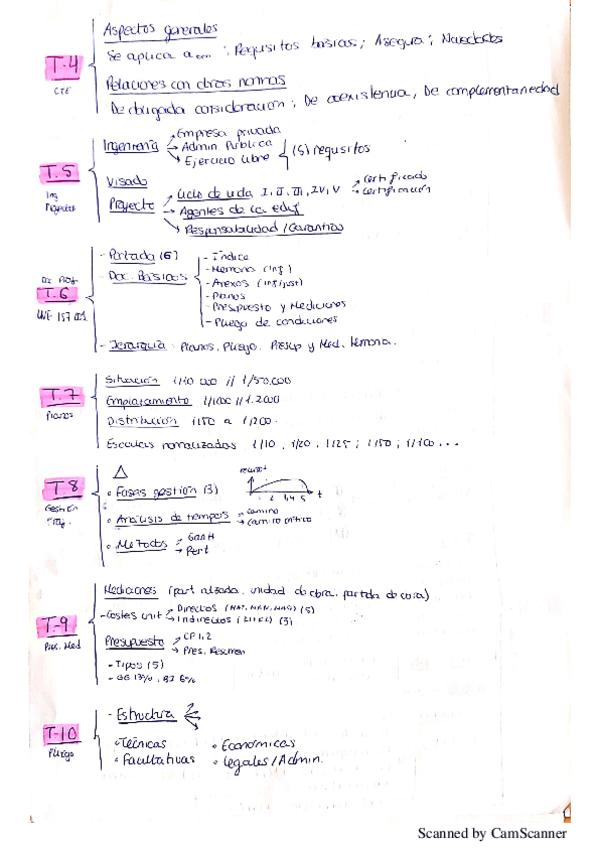 T.4
CTE
Aspectos generales
Se aplica a... : Requisitos básicos; Asegura; Novedades
Relaciones con otras normas
De obligada consideración; De coexistencia, De complementariedad
T.5
Ing.
Proyectos
Ingeniería → Empresa privada
→ Admin Pública
→ Ejercicio libre
(5) requisitos
Visado
Proyecto → Ciclo de vida I, II, III, IV, V → Certificado
→ Certificación
→ Agentes de la edif
→ Responsabilidad / Garantías
T.6
UNE 157 001
- Portada (6)
- Doc. Básicos
- Índice
- Memoria (inf)
- Anexos (inf/just)
- Planos
- Presupuesto y Mediciones
- Pliego de condiciones
- Jerarquía: Planos. Pliego. Presup y Med. Memoria.
T.7
Planos
Situación 1/10 000 // 1/50.000
Emplazamiento 1/1000 // 1.2000
Distribución 1/50 a 1/200.
Escalas normalizadas 1/10, 1/20, 1/25; 1/50; 1/100...
T.8
Gestión
Proy.
Fases gestión (3)
t
Análisis de tiempos → camino
→ camino crítico
Métodos → Gantt
→ Pert
T-9
Pres. Med
Mediciones (part alzada, unidad de obra, partida de obra)
- Costes unit → Directos (MAT, MAN, MAQ) (5)
→ Indirectos (3)
Presupuesto → CP 1, 2
→ Pres. Resumen
- Tipos (5)
- GG 13%, BI 6%
T-10
Pliego
- Estructura
• Técnicas
• Económicas
• Facultativas
• Legales/Admin.
Scanned by CamScanner